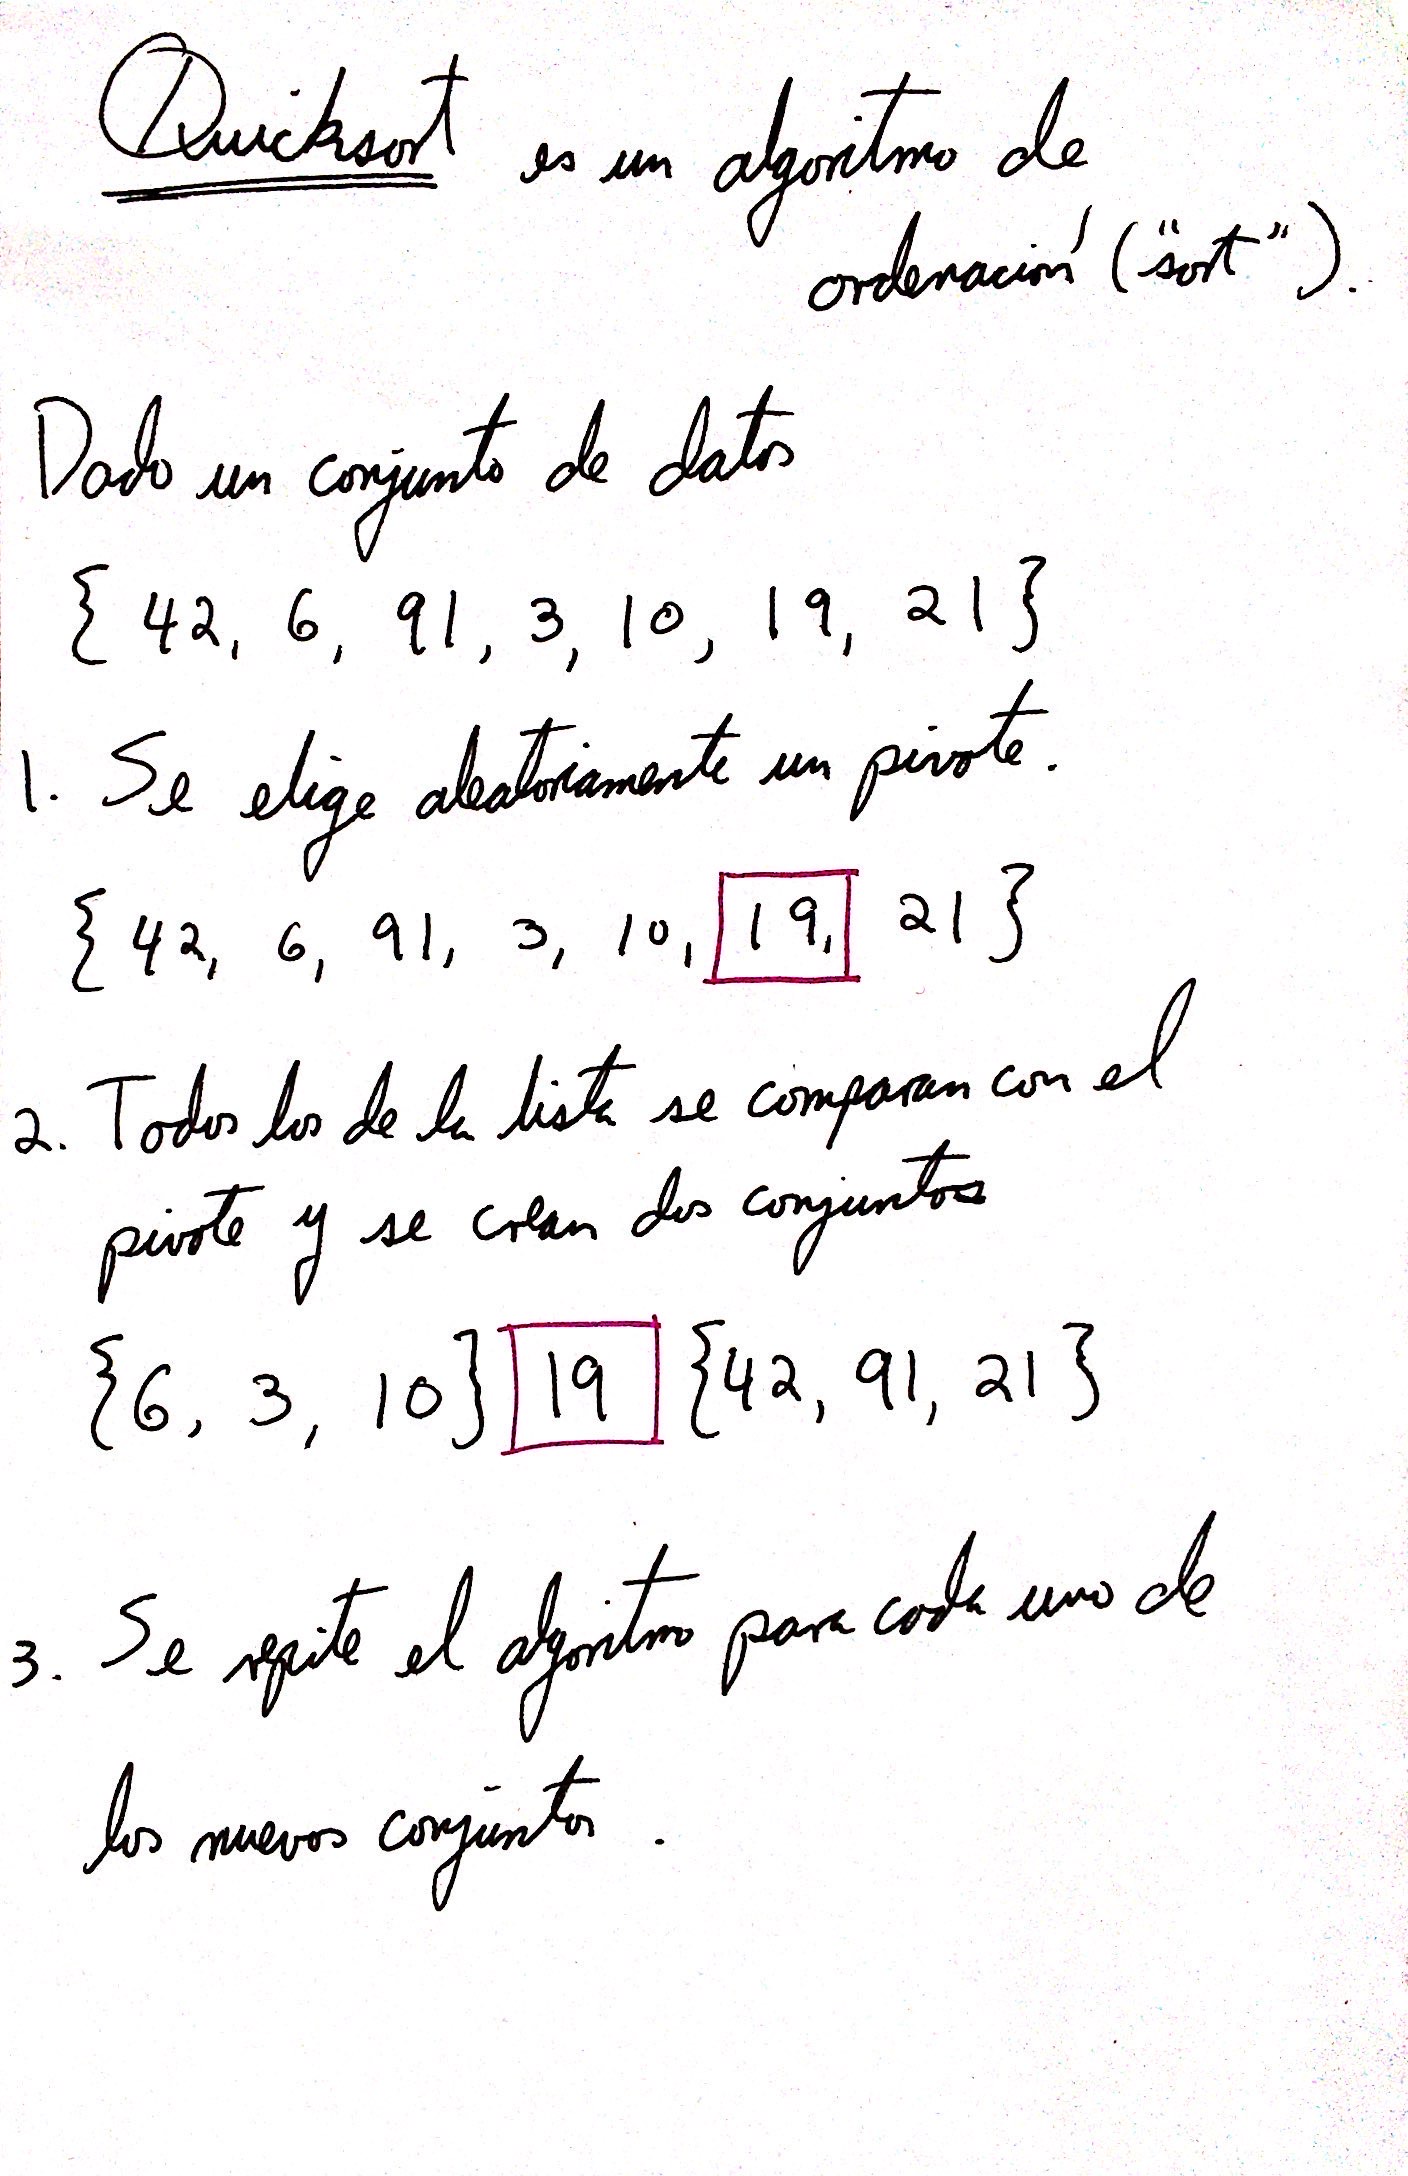 Quicksort es un algoritmo de
ordenación ("sort").
Dado un conjunto de datos
{ 42, 6, 91, 3, 10, 19, 21 }
1. Se elige aleatoriamente un pivote.
{ 42, 6, 91, 3, 10, 19, 21 }
2. Todos los de la lista se comparan con el
pivote y se crean dos conjuntos
{6, 3, 10} 19 {42, 91, 21}
3. Se repite el algoritmo para cada uno de
los nuevos conjuntos.